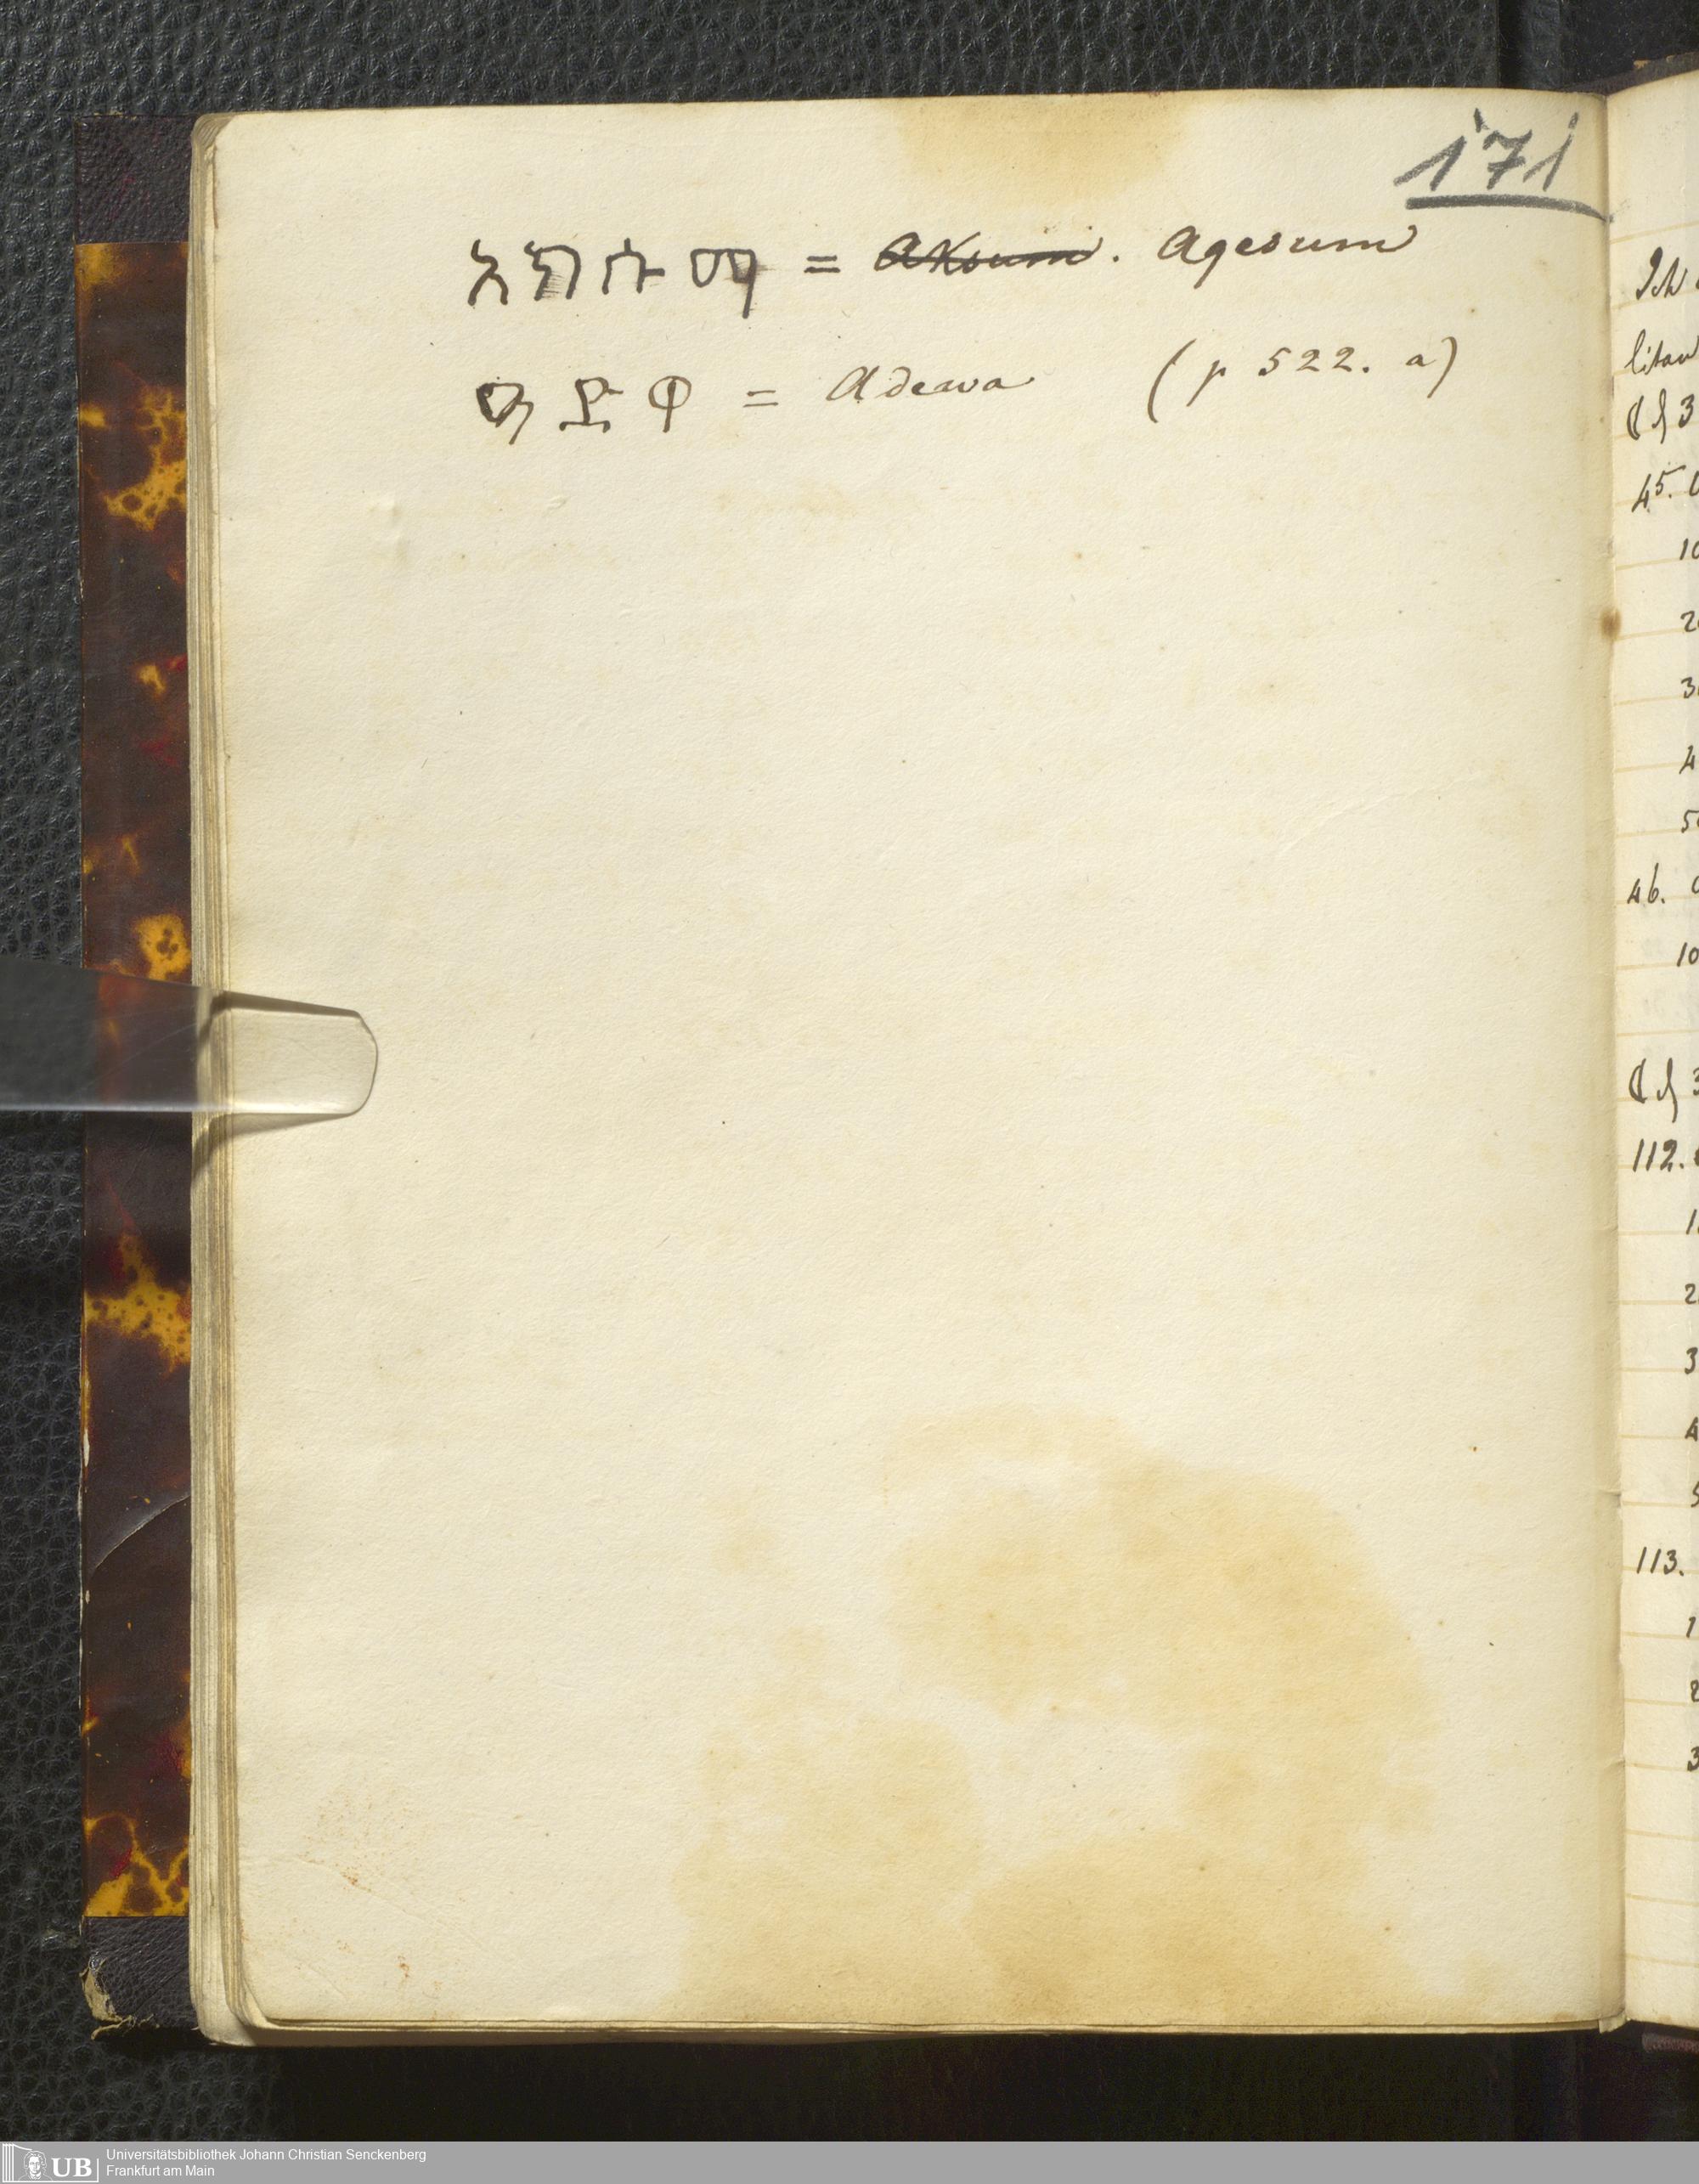 171
አክሱማ = ~~Aksum~~. Agesum
ዓድዋ = Adeava (p 522. a)
Ich
litau
3
45.
10
2
3
4
5
46.
10
3
112.
1
2
3
4
5
113.
1
2
3
UB Universitätsbibliothek Johann Christian Senckenberg
Frankfurt am Main